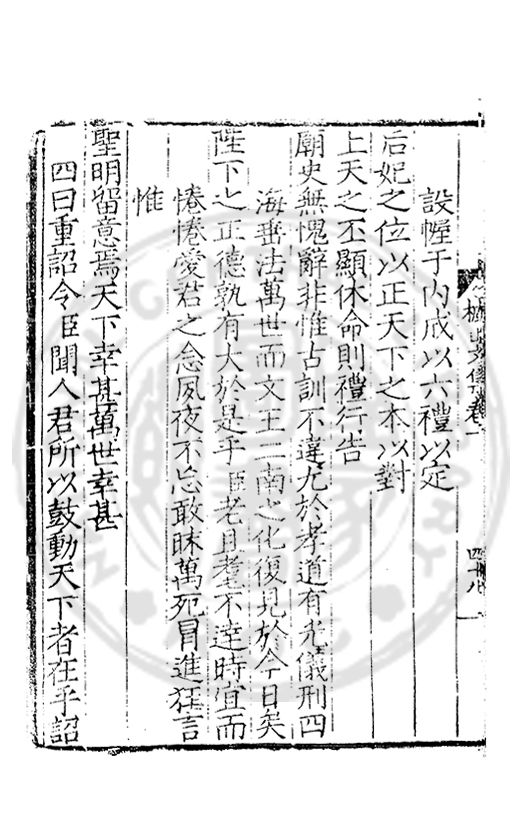 設幄于內成以六禮以定
后妃之位以正天下之本以對
上天之丕顯休命則禮行告
廟史無愧辭非惟古訓不違尤於孝道有光儀刑四
海垂法萬世而文王二南之化復見於今日矣
陛下之正德孰有大於是乎臣老且耄不達時宜而
惓惓愛君之念夙夜不忘敢昧萬死冒進狂言
惟
聖明留意焉天下幸甚萬世幸甚
四曰重詔令臣聞人君所以鼓動天下者在乎詔
卷一
四十八